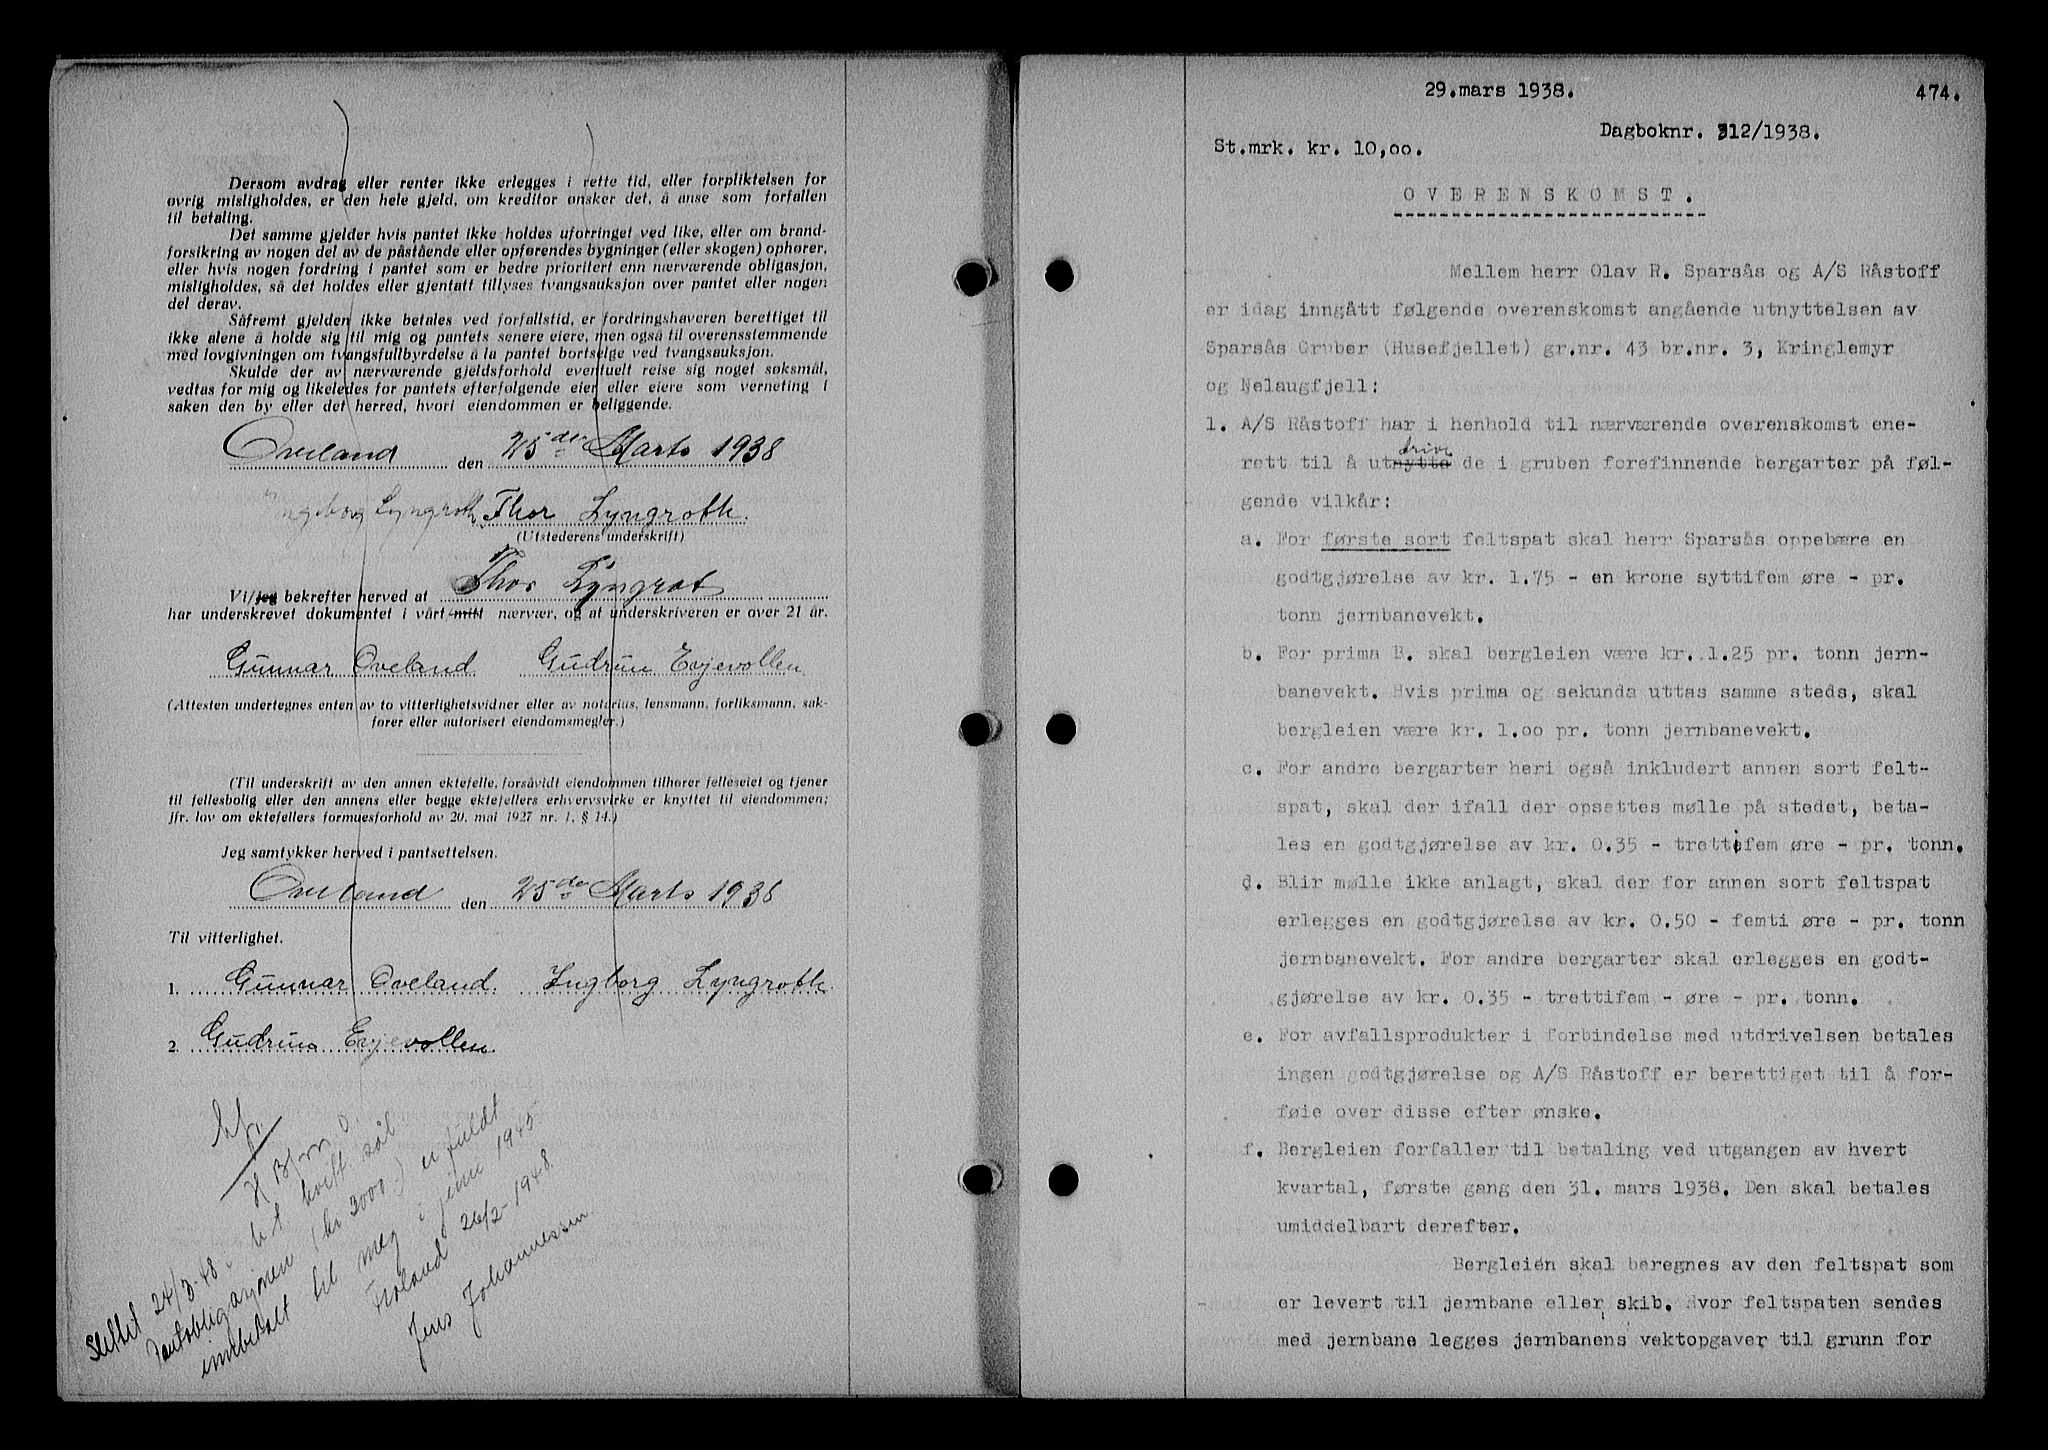 Dersom avdrag eller renter ikke erlegges i rette tid, eller forpliktelsen for
øvrig misligholdes, er den hele gjeld, om kreditor ønsker det, å anse som forfallen
til betaling.
Det samme gjelder hvis pantet ikke holdes uforringet ved like, eller om brand-
forsikring av nogen del av de påstående eller opførendes bygninger (eller skogen) ophører,
eller hvis nogen fordring i pantet som er bedre prioritert enn nærværende obligasjon,
misligholdes, så det holdes eller gjentatt tillyses tvangsauksjon over pantet eller nogen
del derav.
Såfremt gjelden ikke betales ved forfallstid, er fordringshaveren berettiget til
ikke alene å holde sig til mig og pantets senere eiere, men også til overensstemmende
med lovgivningen om tvangsfullbyrdelse å la pantet bortselge ved tvangsauksjon.
Skulde der av nærværende gjeldsforhold eventuelt reise sig noget søksmål,
vedtas for mig og likeledes for pantets efterfølgende eier eller eiere som verneting i
saken den by eller det herred, hvori eiendommen er beliggende.
Oveland den 25de Marts 1938
Ingeborg Lyngroth Thor Lyngroth
(Utstederens underskrift)
Thor Lyngrot
Vi/jeg bekrefter herved at
har underskrevet dokumentet i vårt mitt nærvær, og at underskriveren er over 21 år.
Gunnar Oveland Gudrun Evjevollen
(Attesten undertegnes enten av to vitterlighetsvidner eller av notarius, lensmann, forliksmann, sak-
fører eller autorisert eiendomsmegler.)
(Til underskrift av den annen ektefelle, forsåvidt eiendommen tilhører felleseiet og tjener
til fellesbolig eller den annens eller begge ektefellers erhvervsvirke er knyttet til eiendommen;
jfr. lov om ektefellers formuesforhold av 20. mai 1927 nr. 1, § 14.)
Jeg samtykker herved i pantsettelsen.
Oveland den 25de Marts 1938
Til vitterlighet.
1. Gunnar Oveland. Ingborg Lyngroth
2. Gudrun Evjevollen
Slettet 24/3-48
Pantobligasjonen (kr 2000) er fuldt
innbetalt til meg i juni 1945
Froland 26/2-1948
Jens Johannessen
29.mars 1938. 474.
Dagboknr. 312/1938.
St.mrk. kr. 10,00.
OVERENSKOMST.
Mellem herr Olav R. Sparsås og A/S Råstoff
er idag inngått følgende overenskomst angående utnyttelsen av
Sparsås Gruber (Husefjellet) gr.nr. 43 br.nr. 3, Kringlemyr
og Nelaugfjell:
1. A/S Råstoff har i henhold til nærværende overenskomst ene-
drive
rett til å utnytte de i gruben forefinnende bergarter på føl-
gende vilkår:
a. For første sort feltspat skal herr Sparsås oppebære en
godtgjørelse av kr. 1.75 - en krone syttifem øre - pr.
tonn jernbanevekt.
b. For prima B. skal bergleien være kr. 1.25 pr. tonn jern-
banevekt. Hvis prima og sekunda uttas samme steds, skal
bergleien være kr. 1.00 pr. tonn jernbanevekt.
c. For andre bergarter heri også inkludert annen sort felt-
spat, skal der ifall der opsettes mølle på stedet, beta-
les en godtgjørelse av kr. 0.35 - trettifem øre - pr. tonn.
d. Blir mølle ikke anlagt, skal der for annen sort feltspat
erlegges en godtgjørelse av kr. 0.50 - femti øre - pr. tonn
jernbanevekt. For andre bergarter skal erlegges en godt-
gjørelse av kr. 0.35 - trettifem - øre - pr. tonn.
e. For avfallsprodukter i forbindelse med utdrivelsen betales
ingen godtgjørelse og A/S Råstoff er berettiget til å for-
føie over disse efter ønske.
f. Bergleien forfaller til betaling ved utgangen av hvert
kvartal, første gang den 31. mars 1938. Den skal betales
umiddelbart derefter.
Bergleien skal beregnes av den feltspat som
er levert til jernbane eller skib. Hvor feltspaten sendes
med jernbane legges jernbanens vektopgaver til grunn for